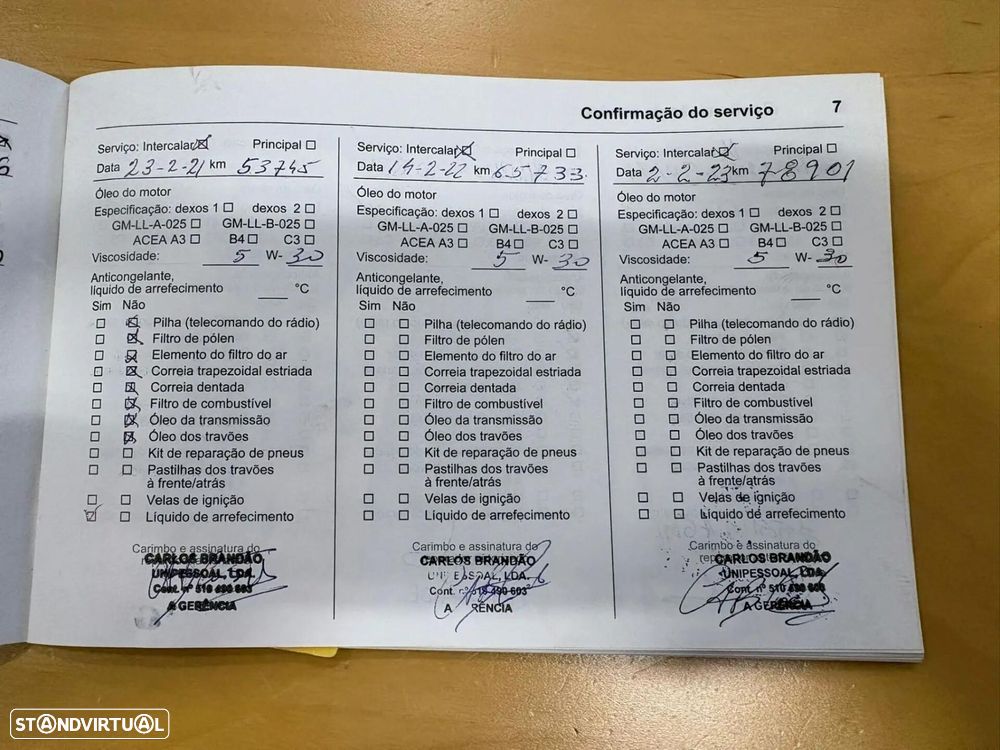 Confirmação do serviço 7
Serviço: Intercalar ☒ Principal ☐
Data 23-2-21 km 53745
Óleo do motor
Especificação: dexos 1 ☐ dexos 2 ☐
GM-LL-A-025 ☐ GM-LL-B-025 ☐
ACEA A3 ☐ B4 ☐ C3 ☐
Viscosidade: 5 W- 30
Anticongelante,
líquido de arrefecimento ___ °C
Sim Não
☐ ☒ Pilha (telecomando do rádio)
☐ ☒ Filtro de pólen
☐ ☒ Elemento do filtro do ar
☐ ☒ Correia trapezoidal estriada
☐ ☒ Correia dentada
☐ ☒ Filtro de combustível
☐ ☒ Óleo da transmissão
☐ ☒ Óleo dos travões
☐ ☐ Kit de reparação de pneus
☐ ☐ Pastilhas dos travões
à frente/atrás
☐ ☐ Velas de ignição
☒ ☐ Líquido de arrefecimento
Carimbo e assinatura do
CARLOS BRANDÃO
UNIPESSOAL, LDA.
Cont. nº 510 490 603
A GERÊNCIA
Serviço: Intercalar ☒ Principal ☐
Data 14-2-22 km 65733
Óleo do motor
Especificação: dexos 1 ☐ dexos 2 ☐
GM-LL-A-025 ☐ GM-LL-B-025 ☐
ACEA A3 ☐ B4 ☐ C3 ☐
Viscosidade: 5 W- 30
Anticongelante,
líquido de arrefecimento ___ °C
Sim Não
☐ ☐ Pilha (telecomando do rádio)
☐ ☐ Filtro de pólen
☐ ☐ Elemento do filtro do ar
☐ ☐ Correia trapezoidal estriada
☐ ☐ Correia dentada
☐ ☐ Filtro de combustível
☐ ☐ Óleo da transmissão
☐ ☐ Óleo dos travões
☐ ☐ Kit de reparação de pneus
☐ ☐ Pastilhas dos travões
à frente/atrás
☐ ☐ Velas de ignição
☐ ☐ Líquido de arrefecimento
Carimbo e assinatura do
CARLOS BRANDÃO
LDA.
Cont. nº 510 490 603
A RÊNCIA
Serviço: Intercalar ☒ Principal ☐
Data 2-2-23 km 78901
Óleo do motor
Especificação: dexos 1 ☐ dexos 2 ☐
GM-LL-A-025 ☐ GM-LL-B-025 ☐
ACEA A3 ☐ B4 ☐ C3 ☐
Viscosidade: 5 W- 30
Anticongelante,
líquido de arrefecimento ___ °C
Sim Não
☐ ☐ Pilha (telecomando do rádio)
☐ ☐ Filtro de pólen
☐ ☐ Elemento do filtro do ar
☐ ☐ Correia trapezoidal estriada
☐ ☐ Correia dentada
☐ ☐ Filtro de combustível
☐ ☐ Óleo da transmissão
☐ ☐ Óleo dos travões
☐ ☐ Kit de reparação de pneus
☐ ☐ Pastilhas dos travões
à frente/atrás
☐ ☐ Velas de ignição
☐ ☐ Líquido de arrefecimento
Carimbo e assinatura do
CARLOS BRANDÃO
UNIPESSOAL, LDA.
Cont. nº 510 490 603
A GERÊNCIA
STANDVIRTUAL